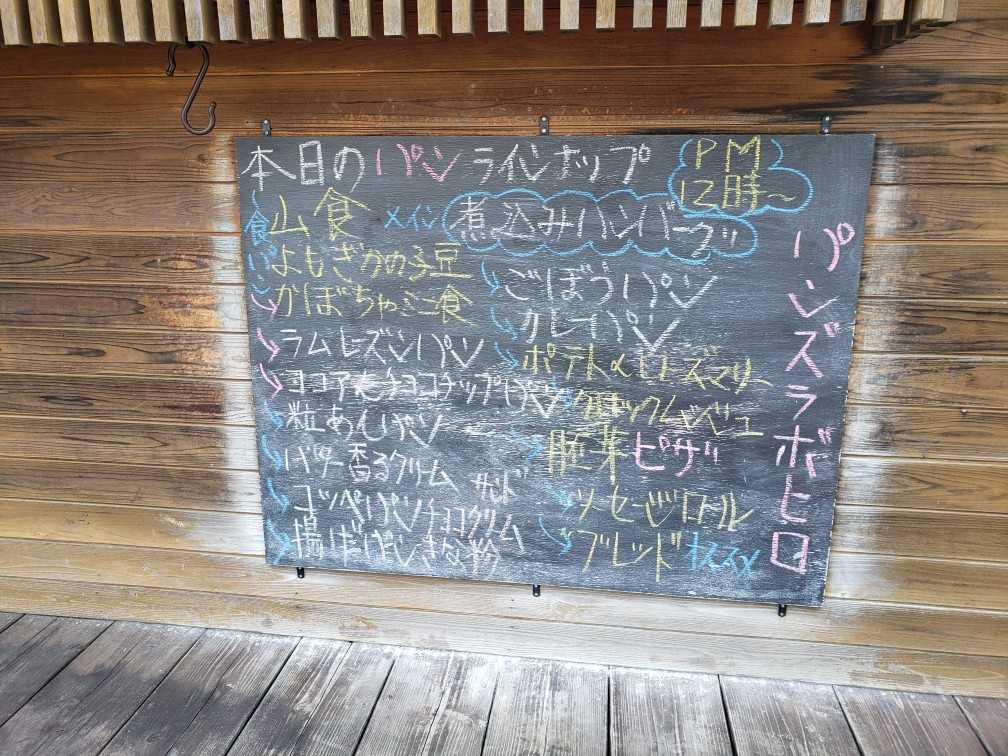 本日のパンラインナップ
PM
12時~
食パン
山食
よもぎかのこ豆
かぼちゃミニ食
ラムレーズンパン
ココア&チョコチップパン
粒あんパン
バター香るクリーム
コッペパンチョコクリームサンド
揚げぱんきな粉
メイン
煮込みハンバーグ
ごぼうパン
カレーパン
ポテト&ローズマリー
胚芽ピザ
ソーセージロール
ブレッド オススメ
パンズラボヒロ